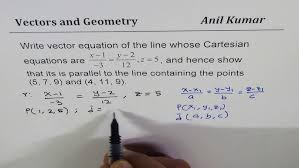 Vectors and Geometry Anil Kumar
Write vector equation of the line whose Cartesian
equations are x-1/-3 = y-2/12, z = 5, and hence show
that its is parallel to the line containing the points
(5, 7, 9) and (4, 11, 9).
r: x-1/-3 = y-2/12, z = 5 x-x₁/a = y-y₁/b = z-z₁/c
P(1, 2, 5) ; d⃗ = P(x₁, y₁, z₁)
d⃗ (a, b, c)